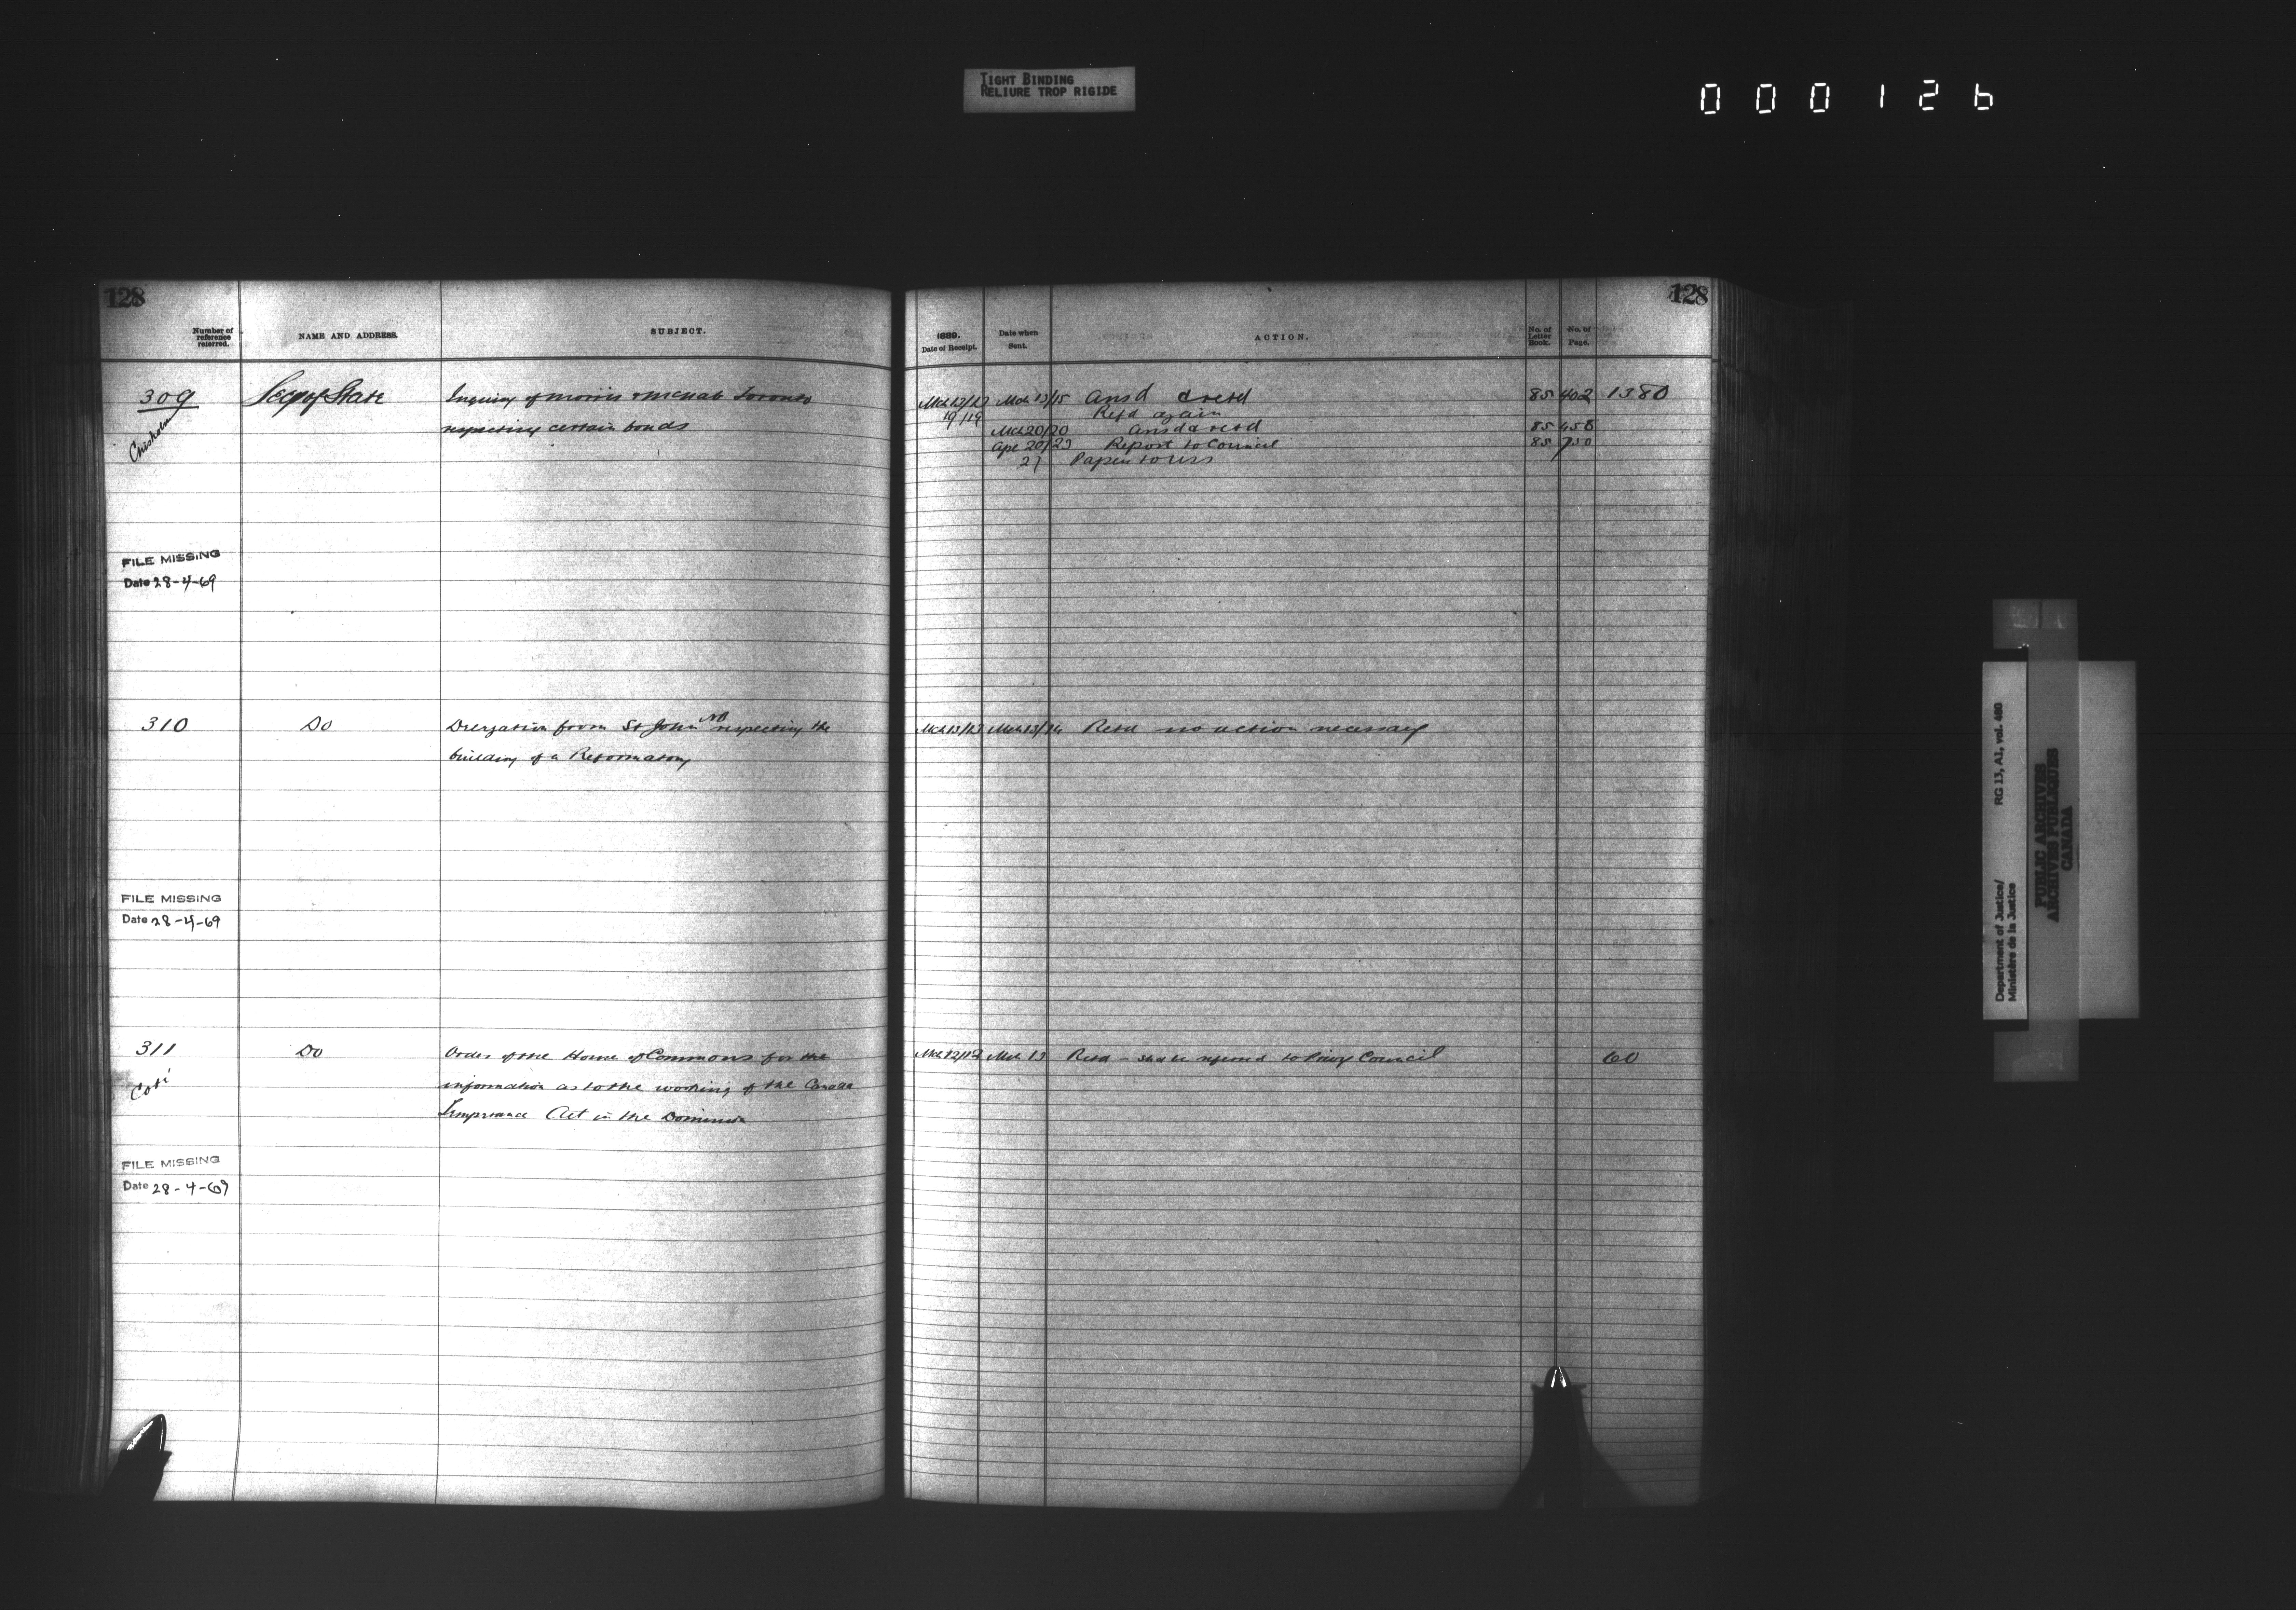 TIGHT BINDING
RELIURE TROP RIGIDE
000126
128
128
Number of reference referred.
NAME AND ADDRESS.
SUBJECT.
1889.
Date of Receipt.
Date when Sent.
ACTION.
No. of Letter Book.
No. of Page.
309 Secy of State Inquiry of Morris & McNab Toronto Mch 12/13 Mch 13/15 Ansd & retd 85 402 1380
19/19 Refd again
Chisholm respecting certain bonds Mch 20/20 Ansd & retd 85 458
Apl 20/23 Report to Council 85 750
Papers to
FILE MISSING
Date 28-4-69
310 Do Delegation from St John NB respecting the Mch 13/13 Mch 13/ Retd no action necessary
building of a Reformatory
FILE MISSING
Date 28-4-69
311 Do Order of the House of Commons for the Mch 12/12 Mch 13 Retd – shd be referred to Privy Council 60
Coté information as to the working of the Canada
Temperance Act in the Dominion
FILE MISSING
Date 28-4-69
Department of Justice/ RG 13, A1, vol. 460
Ministère de la Justice
PUBLIC ARCHIVES
ARCHIVES PUBLIQUES
CANADA